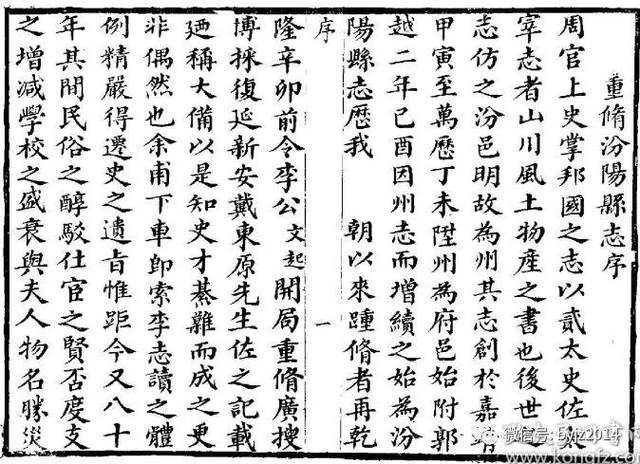 重脩汾陽縣志序
周官上史掌邦國之志以貳太史佐
宰志者山川風土物產之書也後世
志仿之汾邑明故為州其志創於嘉靖
甲寅至萬歷丁未陞州為府邑始附郭
越二年已酉因州志而增續之始為汾
陽縣志歷我 朝以來踵脩者再乾
序 一
隆辛卯前令李公文起開局重脩廣搜
博採復延新安戴東原先生佐之記載
廼稱大備以是知史才綦難而成之更
非偶然也余甫下車卽索李志讀之體
例精嚴得遷史之遺旨惟距今又八十
年其間民俗之醇駁仕宦之賢否度支
之增減學校之盛衰與夫人物名勝災
微信号: fyjz2014